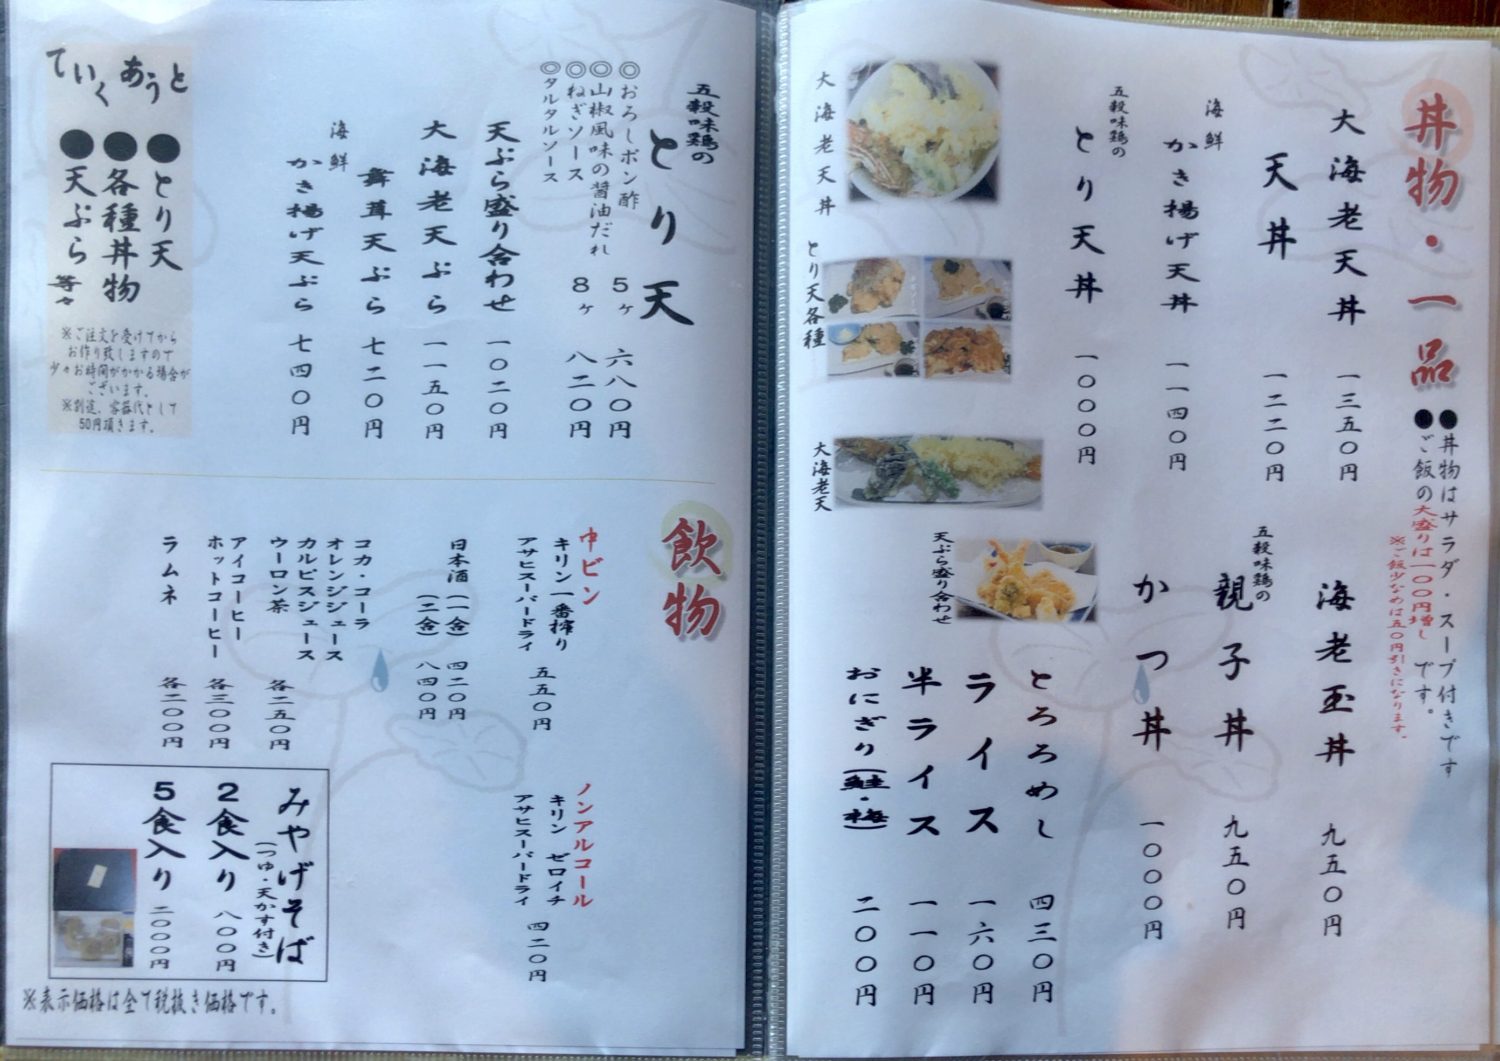 丼物・一品
●丼物はサラダ・スープ付きです
●ご飯の大盛りは一〇〇円増し です。
※ご飯少なめは五〇円引きになります。
大海老天丼 一三五〇円
天丼 一二二〇円
海鮮
かき揚げ天丼 一一四〇円
五穀味鶏の
とり天丼 一〇〇〇円
大海老天丼
とり天各種
大海老天
海老玉丼 九五〇円
五穀味鶏の
親子丼 九五〇円
かつ丼 一〇〇〇円
天ぷら盛り合わせ
とろろめし 四三〇円
ライス 一六〇円
半ライス 一一〇円
おにぎり(鮭・梅) 二〇〇円
五穀味鶏の
とり天
◎おろしポン酢
◎山椒風味の醤油だれ
◎ねぎソース
◎タルタルソース
5ヶ 六八〇円
8ヶ 八二〇円
天ぷら盛り合わせ 一〇二〇円
大海老天ぷら 一一五〇円
舞茸天ぷら 七二〇円
海鮮
かき揚げ天ぷら 七四〇円
ていくあうと
●とり天
●各種丼物
●天ぷら 等々
※ご注文を受けてから
お作り致しますので
少々お時間がかかる場合が
ございます。
※別途、容器代として
50円頂きます。
飲物
中ビン
キリン一番搾り
アサヒスーパードライ
五五〇円
日本酒(一合) 四二〇円
(二合) 八四〇円
コカ・コーラ
オレンジジュース
カルピスジュース
ウーロン茶
各二五〇円
アイコーヒー
ホットコーヒー
各三〇〇円
ラムネ 各二〇〇円
ノンアルコール
キリン ゼロイチ
アサヒスーパードライ
四二〇円
みやげそば
(つゆ・天かす付き)
2食入り 八〇〇円
5食入り 二〇〇〇円
※表示価格は全て税抜き価格です。